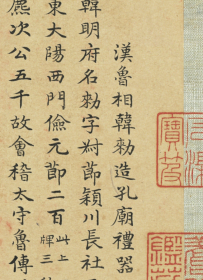 漢魯相韓勑造孔廟禮器
韓明府名勑字叔節潁川長社
東大陽西門儉元節二百
此上
麃次公五千故會稽太守魯傅
石渠
寶笈